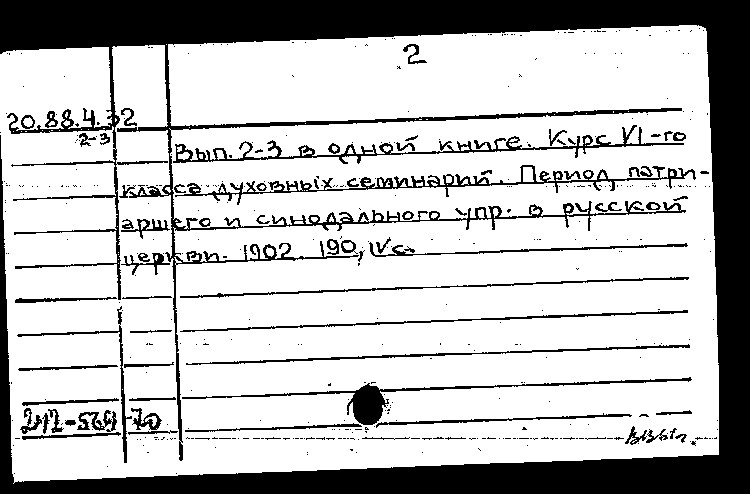 2
20.88.4.32
2-3
Вып. 2-3 в одной книге. Курс VI-го
класса духовных семинарий. Период патри-
аршего и синодального упр. в русской
церкви. 1902. 190, IV с.
70